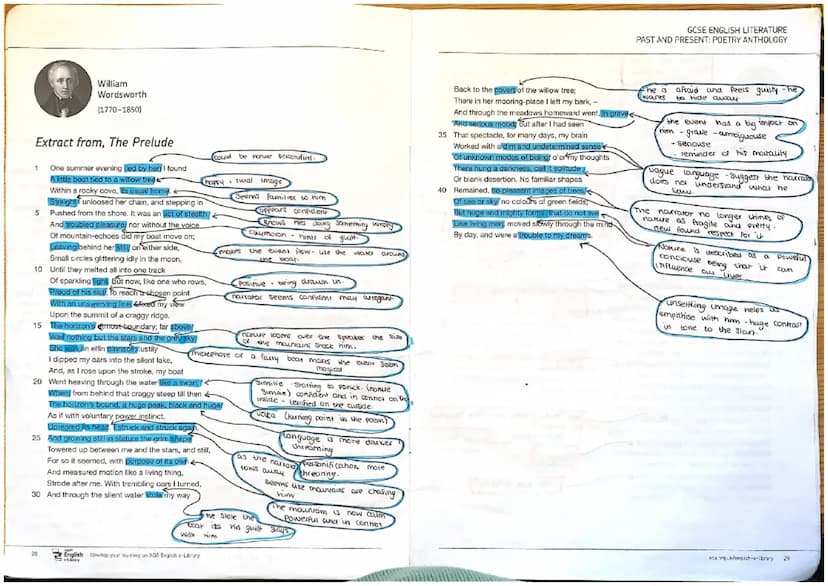 GCSE ENGLISH LITERATURE
PAST AND PRESENT: POETRY ANTHOLOGY
William
Wordsworth
(1770–1850)
Extract from, The Prelude
could be nature personified.
1 One summer evening (led by her) I found
A little boat tied to a willow tree
happy + rural image
Within a rocky cove, its usual home.
Seems familiar to him
Straight I unloosed her chain, and stepping in
appears confident
5 Pushed from the shore. It was an act of stealth
knows hes doing something wrong
And troubled pleasure, nor without the voice
oxymoron - hints of guilt
Of mountain-echoes did my boat move on;
Leaving behind her still, on either side,
makes the event flow - like the water around the boat.
Small circles glittering idly in the moon,
10 Until they melted all into one track
Of sparkling light. But now, like one who rows,
Positive - being drawn in.
Proud of his skill, to reach a chosen point
narrator seems confident may arrogant.
With an unswerving line, I fixed my view
Upon the summit of a craggy ridge,
15 The horizon's utmost boundary; far above
Was nothing but the stars and the grey sky.
nature looms over the speaker the size of the mountains shock him.
She was an elfin pinnace; lustily
metaphore of a fairy boat makes the event seem magical
I dipped my oars into the silent lake,
And, as I rose upon the stroke, my boat
20 Went heaving through the water like a swan;
Simile - starting to panic. (nature simile) confident and in control on the inside - terrified on the outside.
When, from behind that craggy steep till then
volta (turning point in the poem)
The horizon's bound, a huge peak, black and huge,
As if with voluntary power instinct,
Upreared its head. I struck and struck again,
Language is more darker + threatning.
25 And growing still in stature the grim shape
Towered up between me and the stars, and still,
For so it seemed, with purpose of its own
personification more threatning.
And measured motion like a living thing,
Strode after me. With trembling oars I turned,
30 And through the silent water stole my way
The mountain is now calm powerful and in control
he stole the boat its his guilt stays with him
28
English
Develop your learning on AQA English e-Library
Back to the covert of the willow tree;
he is afraid and feels guilty - he wants to hide away
There in her mooring-place I left my bark, –
And through the meadows homeward went, in grave
And serious mood; but after I had seen
the event has a big impact on him - grave - ambiguouse
- seriouse
- reminder of his mortality
35 That spectacle, for many days, my brain
Worked with a dim and undetermined sense
Of unknown modes of being; o'er my thoughts
There hung a darkness, call it solitude
Vague language - suggest the narrator does not understand what he saw.
Or blank desertion. No familiar shapes
40 Remained, no pleasant images of trees,
Of sea or sky, no colours of green fields;
The narrator no longer thinks of nature as fragile and pretty - new found respect for it
But huge and mighty forms, that do not live
Like living men, moved slowly through the mind
Nature is described as a powerful conciouse being that it can influence our lives.
By day, and were a trouble to my dreams.
unsettling image helps us empathise with him - huge contrast in tone to the start.
29